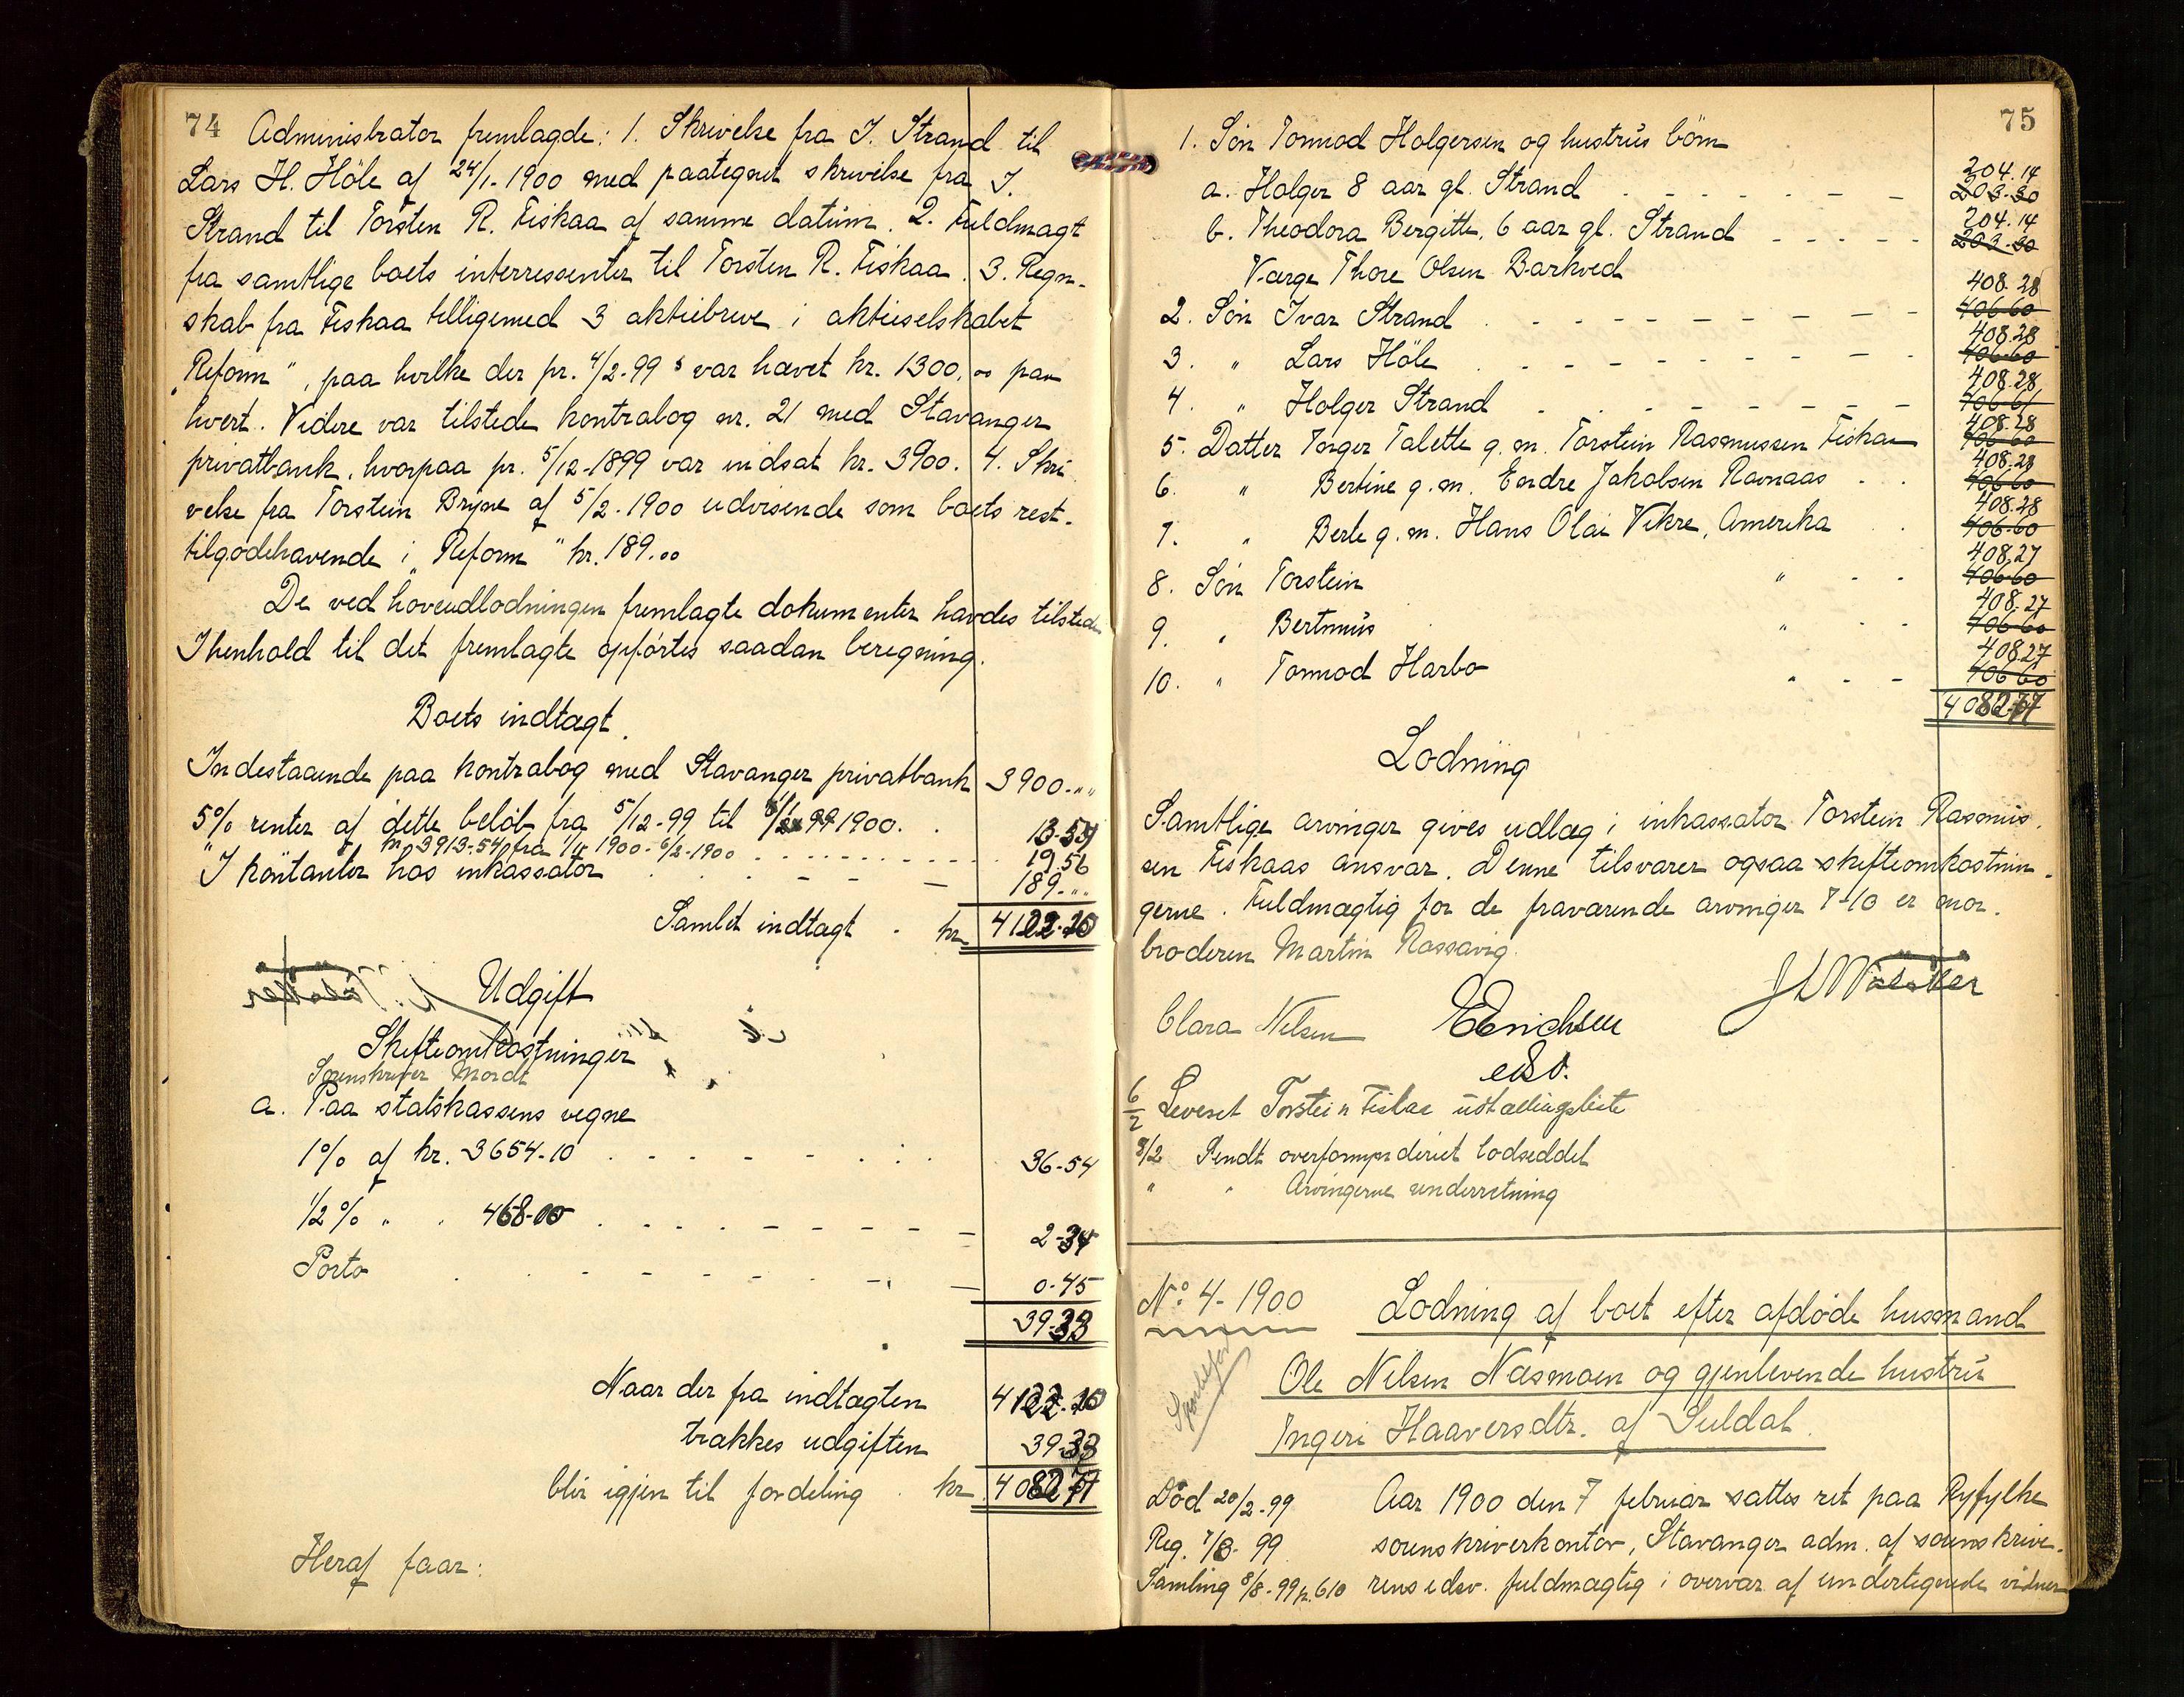 74
Administrator fremlagde: 1. Skrivelse fra I. Strand til
Lars H. Höle af 24/1-1900 med paategnet skrivelse fra I.
Strand til Torsten R. Fiskaa af samme datum. 2. Fuldmagt
fra samtlige boets interressenter til Torsten R. Fiskaa. 3. Regn-
skab fra Fiskaa tilligemed 3 aktiebreve i aktieselskabet
"Reform", paa hvilke der pr. 4/2-99 var hævet kr. 1300,00 paa
hvert. Videre var tilstede kontrabog nr. 21 med Stavanger
privatbank, hvorpaa pr. 5/12-1899 var indsat kr. 3900. 4. Skri
velse fra Torstein Bryne af 5/2-1900 udvisende som boets rest-
tilgodehavende i "Reform" kr. 189.00
De ved hovudlodningen fremlagte dokumenter havdes tilstede
Ihenhold til det fremlagte opførtes saadan beregning.
Boets indtægt.
Indestaaende paa kontrabog med Stavanger privatbank 3900.""
5% renter af dette beløb fra 5/12-99 til 1/1 1900. 13-54
" kr. 3913-54 fra 1/1 1900-6/2-1900 19.56
I kontanter hos inkassator 189.""
Samlet indtægt kr 4122.10
Udgift
Skifteomkostninger
Sorenskriver Mordt
a. Paa statskassens vegne
1% af kr. 3654-10 36-54
1/2% " " 468-00 2-34
Porto 0-45
39-33
Naar der fra indtægten 4122.10
trækkes udgiften 39-33
blir igjen til fordeling kr. 4082-77
Heraf faar:
75
1. Søn Tormod Holgersen og hustrus børn
a. Holger 8 aar gl. Strand 204.14 203-30
b. Theodora Bergitte, 6 aar gl. Strand 204.14 203-30
Værge Thore Olsen Barkved
2. Søn Ivar Strand 408.28 406-60
3. " Lars Höle 408.28 406-60
4. " Holger Strand 408.28 406-61
5. Datter Torger Talette g. m. Torstein Rasmussen Fiskaa 408.28 406-60
6. " Bertine g. m. Endre Jakobsen Ravnaas 408.28 406-60
7. " Berte g. m. Hans Olai Vikre, Amerika 408.28 406-60
8. Søn Torstein " 408.27 406-60
9. " Bertinius " 408.27 406-60
10. " Tormod Harbo " 408.27 406-60
4082-77
Lodning
Samtlige arvinger gives udlæg i inkassator Torstein Rasmus-
sen Fiskaas ansvar. Denne tilsvarer ogsaa skifteomkostnin-
gerne. Fuldmægtig for de fraværende arvinger 7-10 er mor-
broderen Martin Rossavig.
Clara Nilsen EErichsen
edsv.
6/2 Leveret Torstein Fiskaa utællingsliste
8/2 Sendt overformynderiet lodseddel
" " Arvingerne underretning
No. 4-1900 Lodning af boet efter afdøde husmand
Ole Nilsen Næsmoen og gjenlevende hustru
Ingeri Haaversdtr. af Suldal.
Død 20/2-99. Aar 1900 den 7 februar sattes ret paa Ryfylke
Reg. 7/8-99 sorenskriverkontor, Stavanger adm. af sorenskrive-
Samling 8/8-99 p. 610 rens edsv. fuldmægtig i overvær af undertegnede vidner